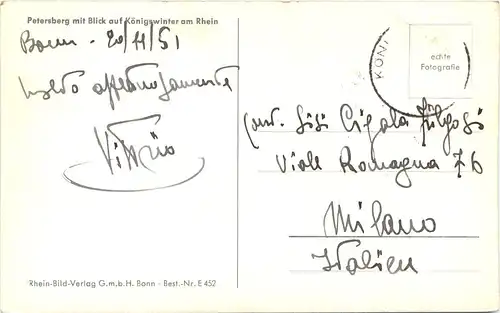 Petersberg mit Blick auf Königswinter am Rhein
Bonn - 20/11/51
affettuosamente
Vittorio
KÖNI
echte
Fotografie
Cigala Fulgosi
Viale Romagna 76
Milano
Italien
Rhein-Bild-Verlag G.m.b.H. Bonn - Best.-Nr. E 452